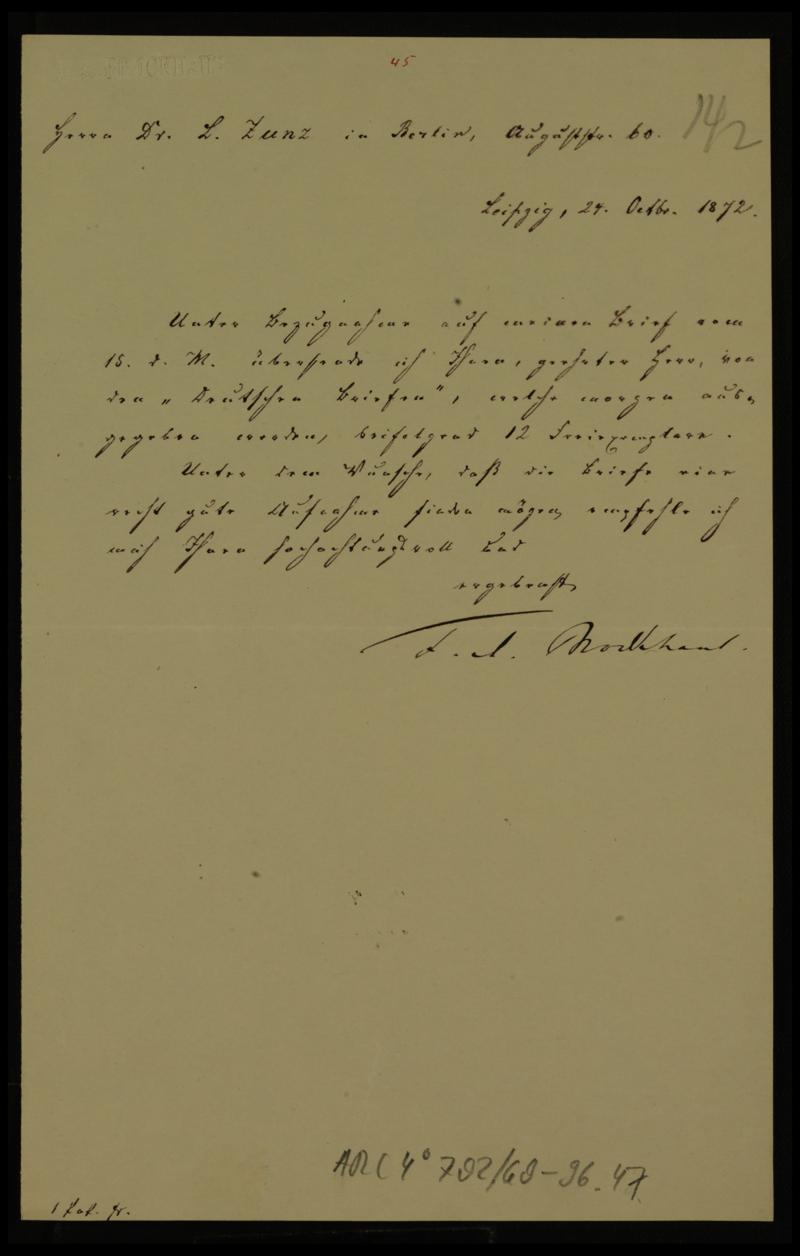 F. A. BROCKHAUS
45
14/2
Herrn Dr. L. Zunz in Berlin, Auguststr. 60.
Leipzig, 24. Octbr. 1872.
Unter Bezugnahme auf meinen Brief vom
15. d. M. übersende ich Ihnen, geehrter Herr, von
den „Deutschen Briefen", welche morgen aus-
gegeben werden, beifolgend 12 Freiexemplare.
Unter dem Wunsche, daß die Briefe eine
recht gute Aufnahme finden mögen, empfehle ich
mich Ihnen hochachtungsvoll und
ergebenst
F. A. Brockhaus.
ARC 4° 792/G9-96.47
1 Pak. fr.